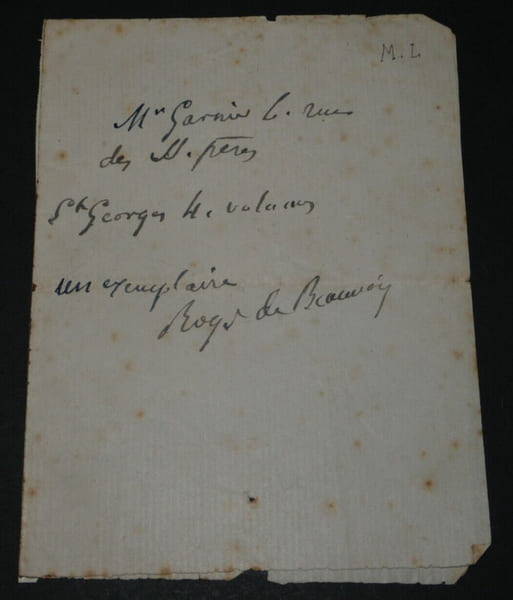 M. L
Mr Garnier 6. rue
des St. pères
St Georges 4. volumes
un exemplaire
Roger de Beauvoir